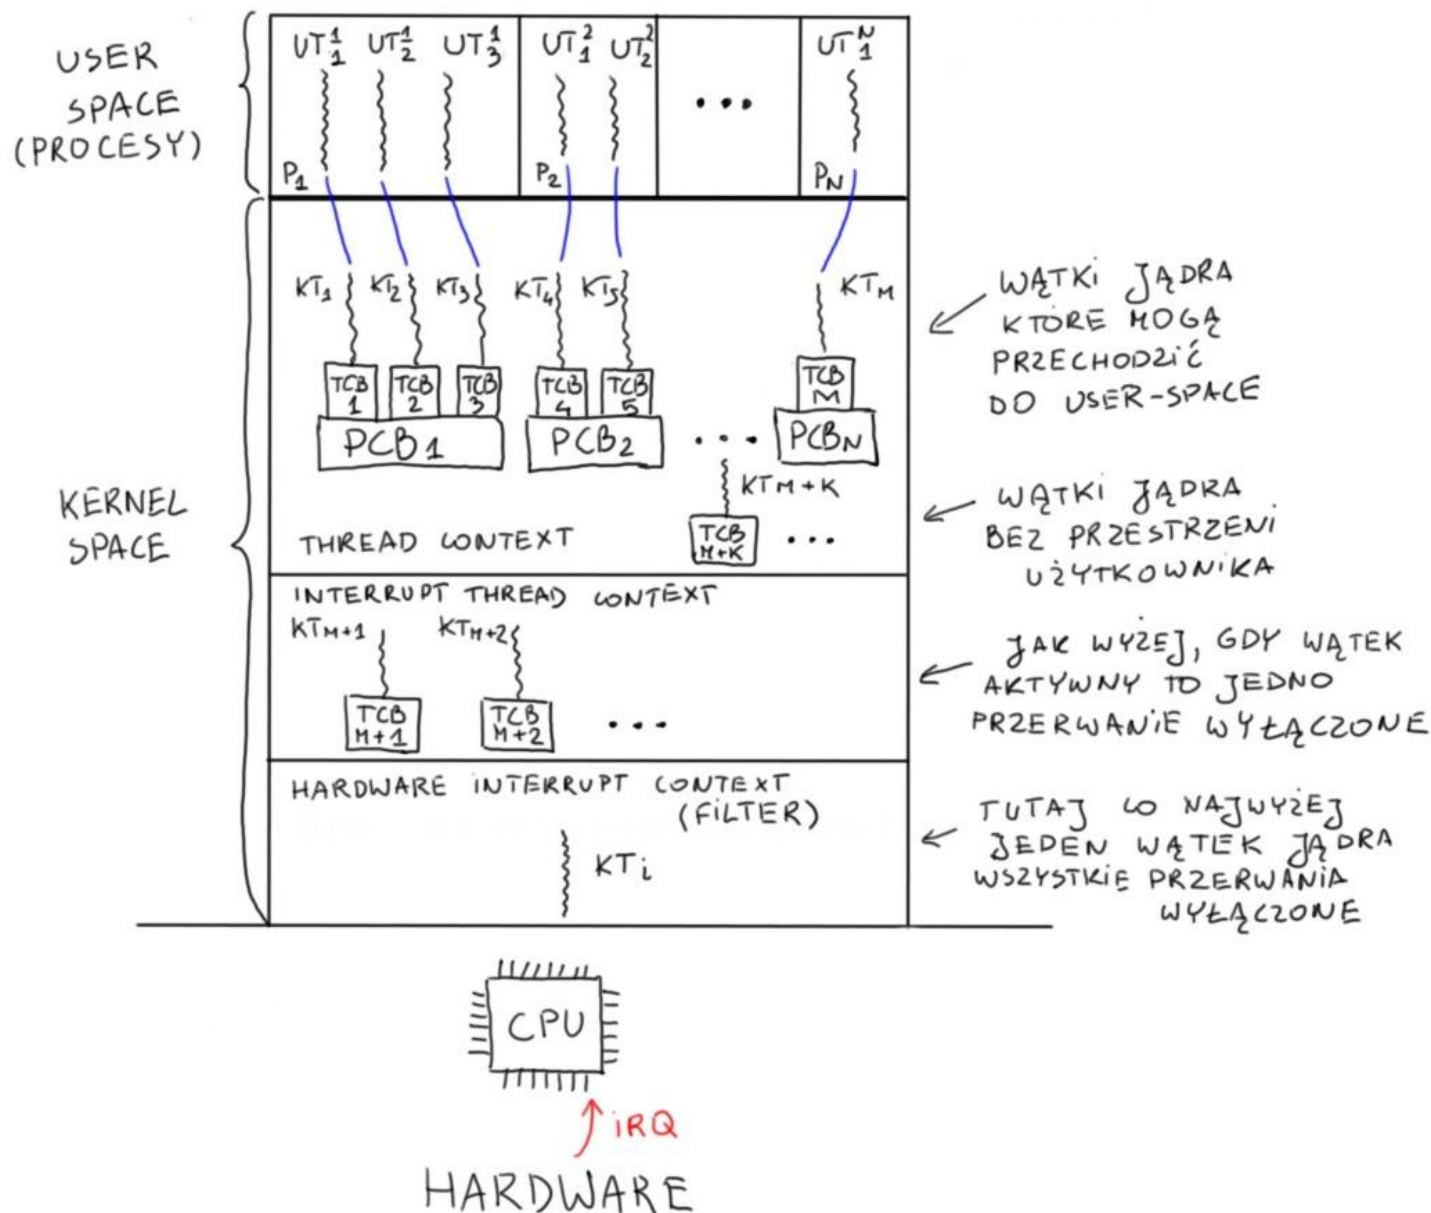 USER
SPACE
(PROCESY)
UT₁¹ UT₂¹ UT₃¹ UT₁² UT₂² UT₁ᴺ
...
P₁ P₂ Pɴ
KERNEL
SPACE
KT₁ KT₂ KT₃ KT₄ KT₅ KTᴍ
TCB 1
TCB 2
TCB 3
TCB 4
TCB 5
TCB M
PCB₁ PCB₂ ... PCBɴ
KTM+K
TCB
M+K
...
THREAD CONTEXT
INTERRUPT THREAD CONTEXT
KTM+1 KTM+2
TCB
M+1
TCB
M+2
...
HARDWARE INTERRUPT CONTEXT
(FILTER)
KTi
WĄTKI JĄDRA
KTÓRE MOGĄ
PRZECHODZIĆ
DO USER-SPACE
WĄTKI JĄDRA
BEZ PRZESTRZENI
UŻYTKOWNIKA
JAK WYŻEJ, GDY WĄTEK
AKTYWNY TO JEDNO
PRZERWANIE WYŁĄCZONE
TUTAJ CO NAJWYŻEJ
JEDEN WĄTEK JĄDRA
WSZYSTKIE PRZERWANIA
WYŁĄCZONE
CPU
IRQ
HARDWARE